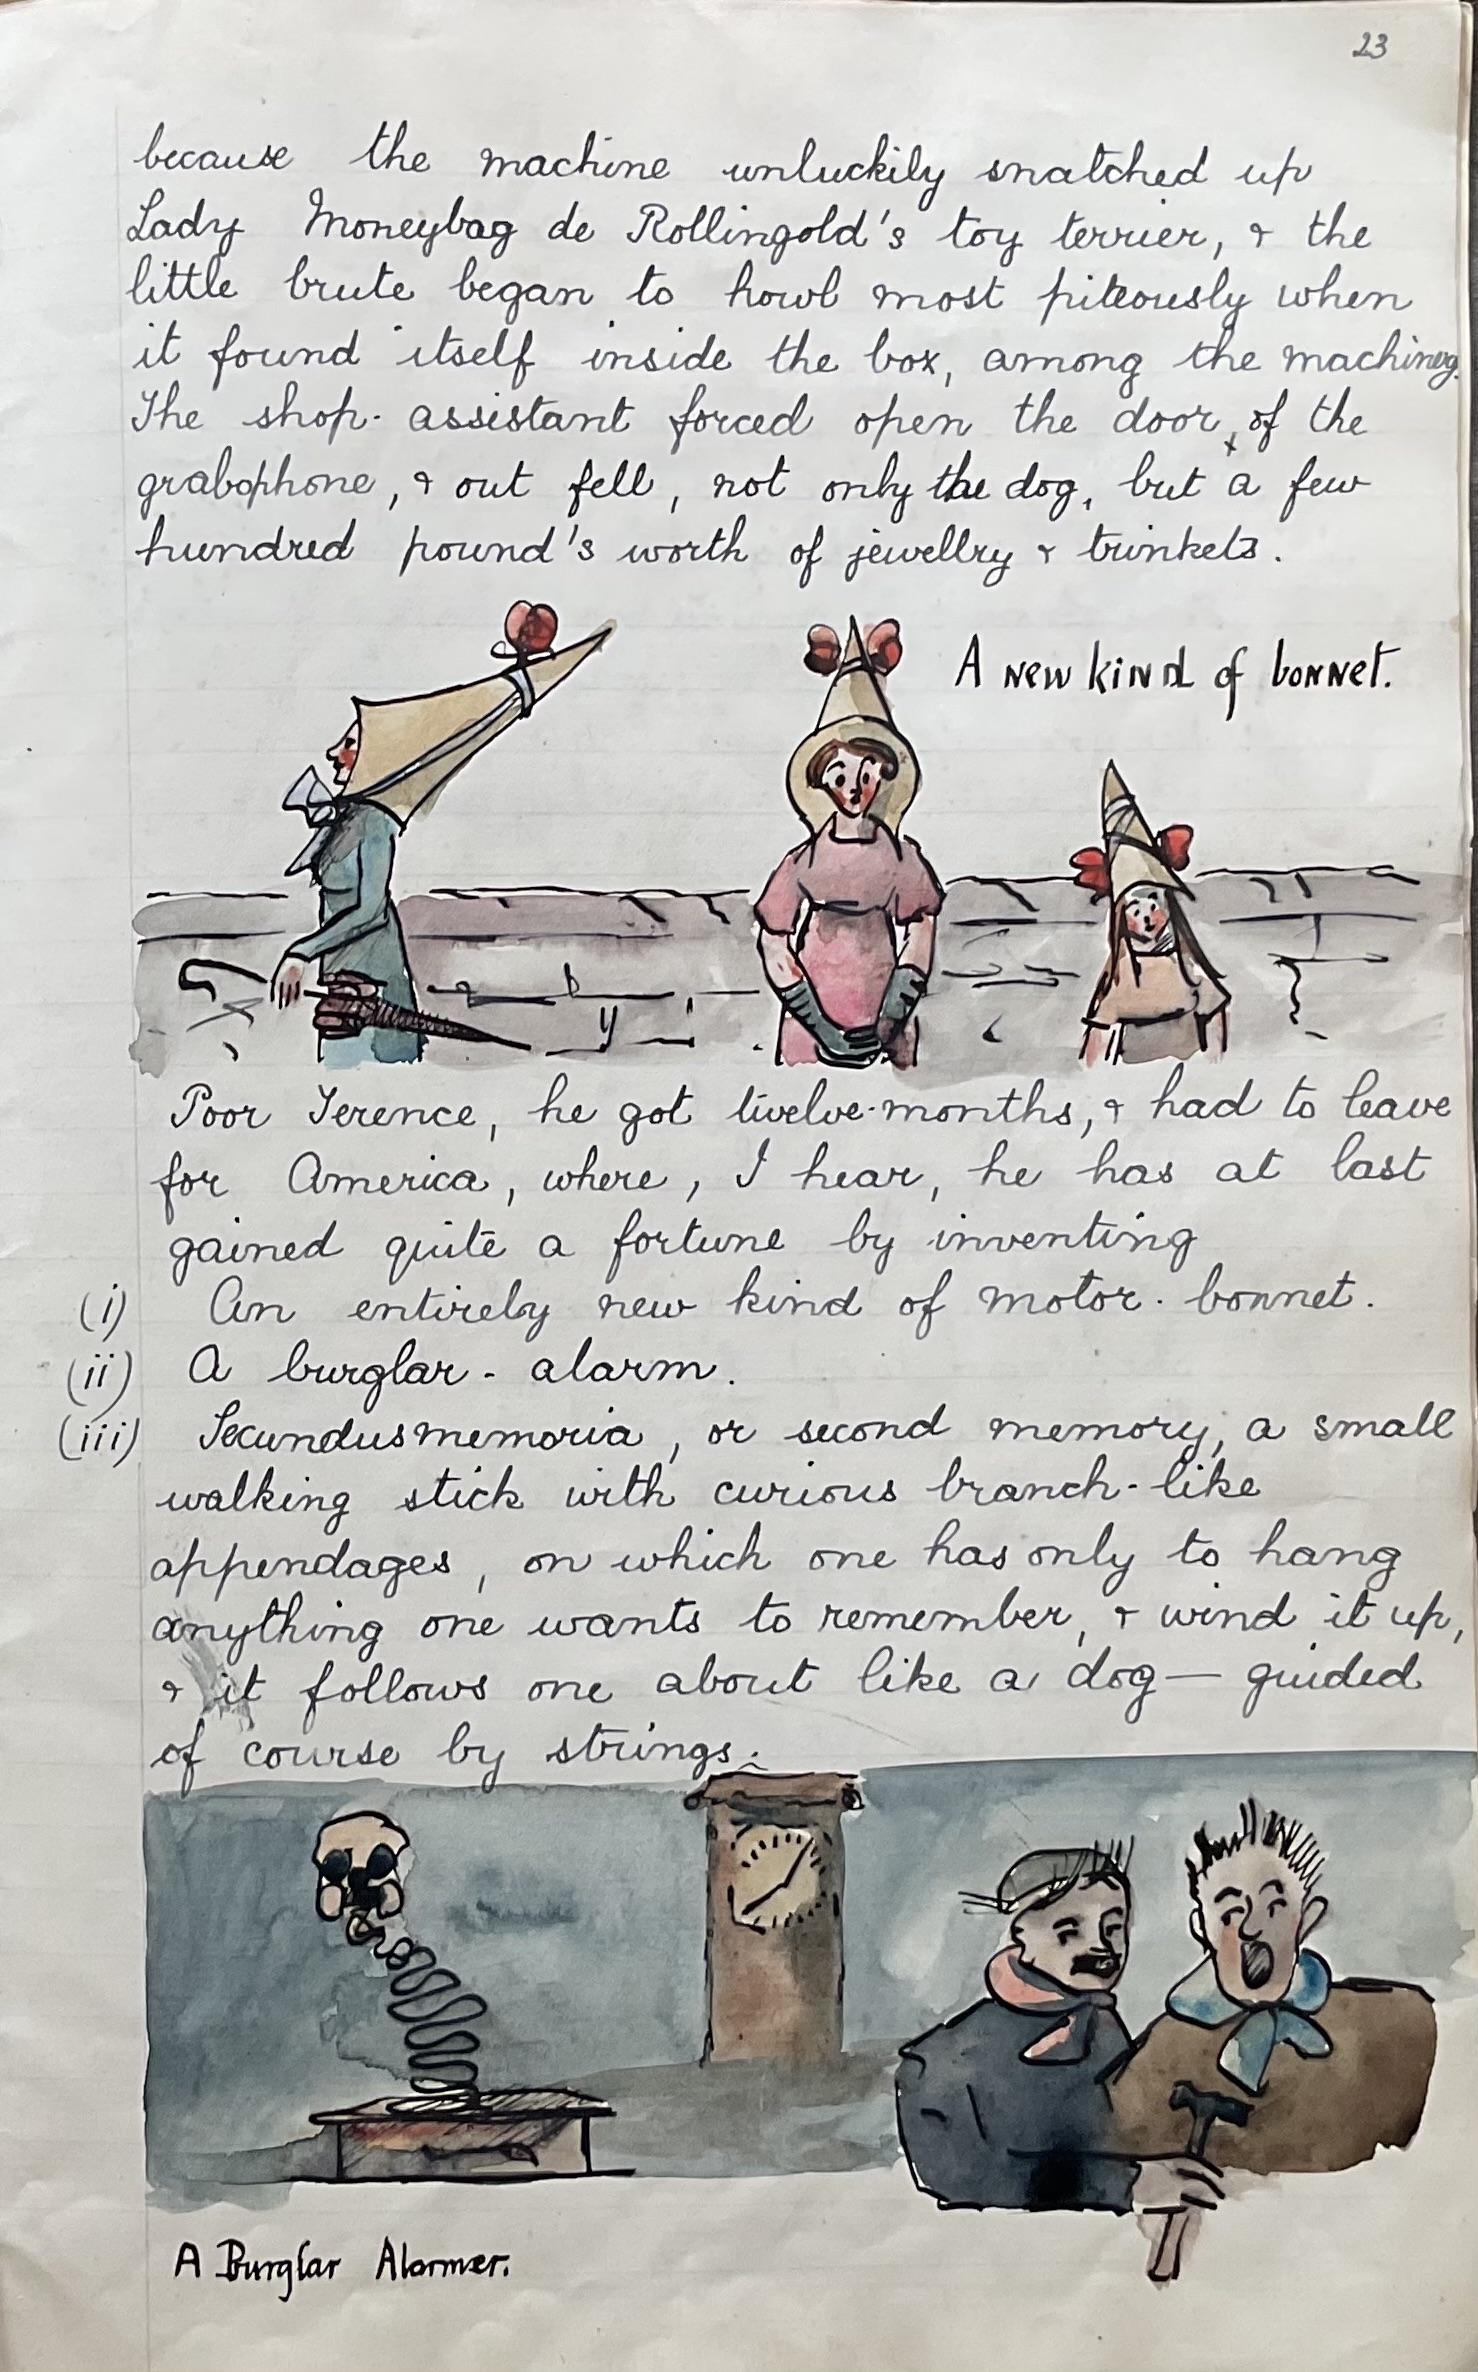 23
because the machine unluckily snatched up
Lady Moneybag de Rollingold's toy terrier, & the
little brute began to howl most piteously when
it found itself inside the box, among the machinery.
The shop-assistant forced open the door, of the
grabophone, & out fell, not only the dog, but a few
hundred pound's worth of jewellry & trinkets.
A new kind of bonnet.
Poor Terence, he got twelve-months, & had to leave
for America, where, I hear, he has at last
gained quite a fortune by inventing
(i) An entirely new kind of motor-bonnet.
(ii) A burglar-alarm.
(iii) Secundusmemoria, or second memory, a small
walking stick with curious branch-like
appendages, on which one has only to hang
anything one wants to remember, & wind it up,
& it follows one about like a dog — guided
of course by strings.
A Burglar Alarmer.